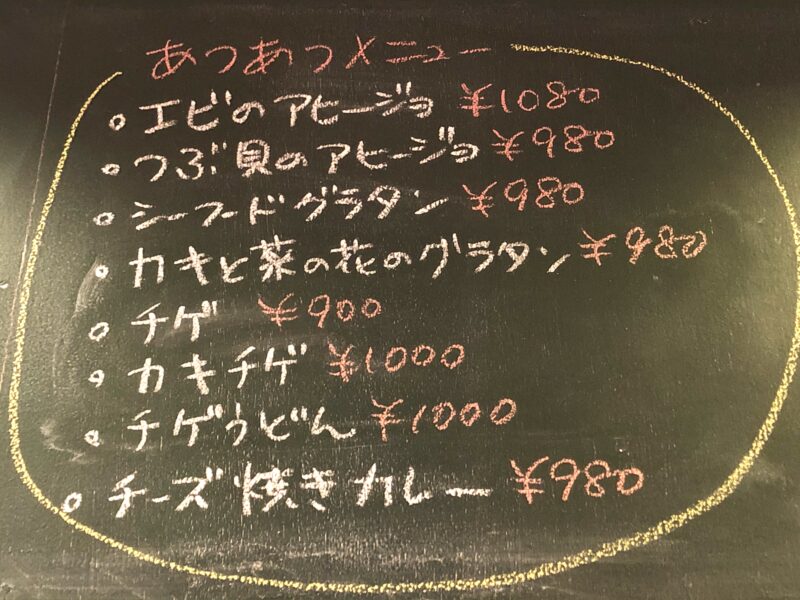 あつあつメニュー
。エビのアヒージョ ¥1080
。つぶ貝のアヒージョ ¥980
。シーフードグラタン ¥980
。カキと菜の花のグラタン ¥980
。チゲ ¥900
。カキチゲ ¥1000
。チゲうどん ¥1000
。チーズ焼きカレー ¥980